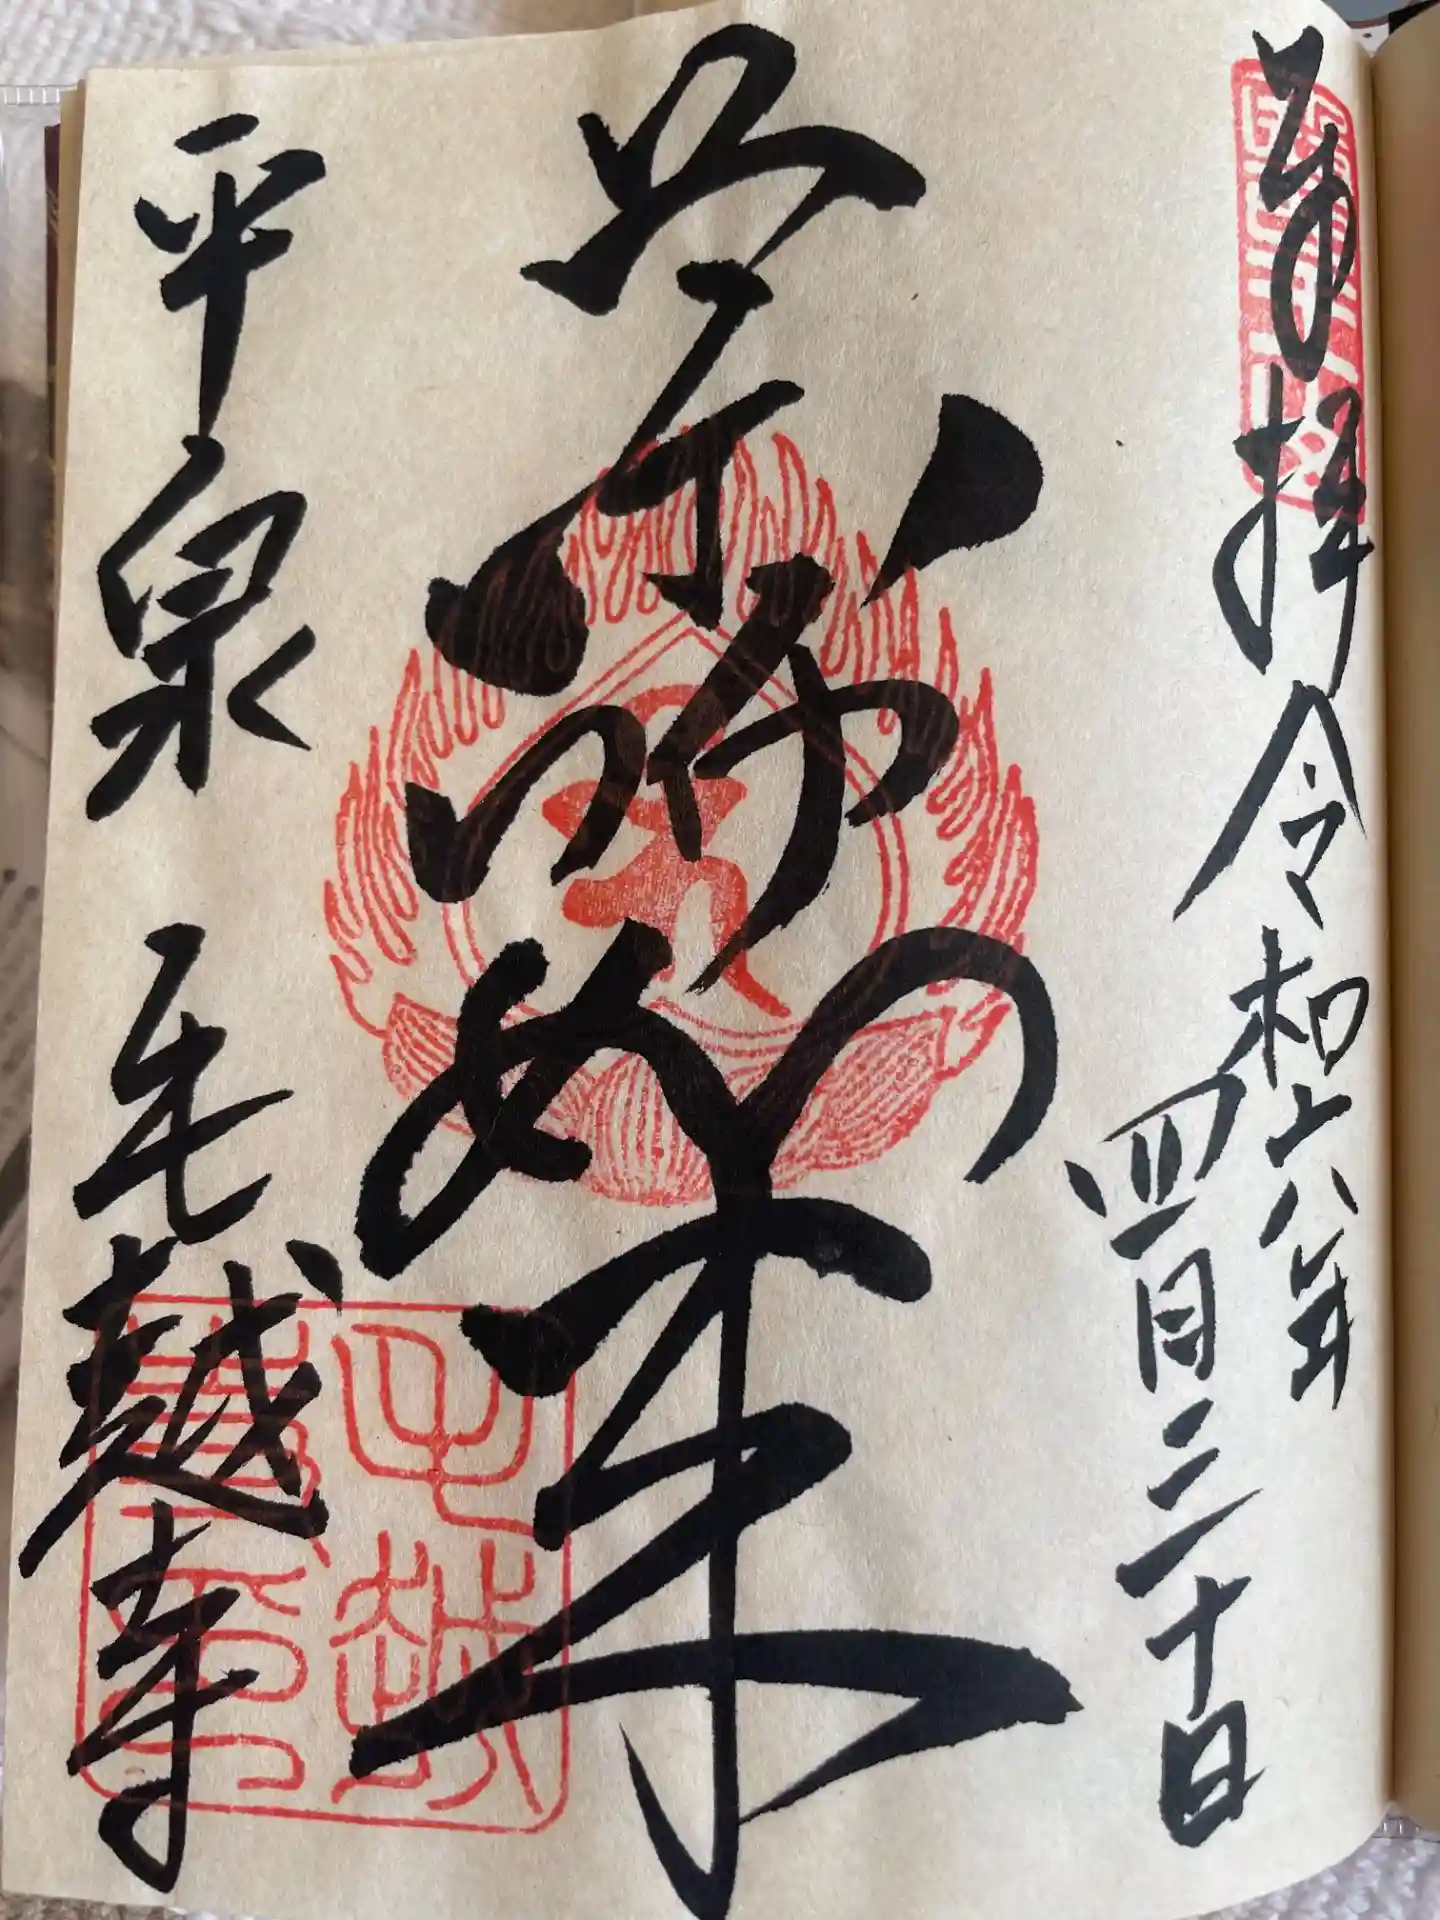 奉拝 令和六年
四月三十日
薬師如来
平泉 毛越寺